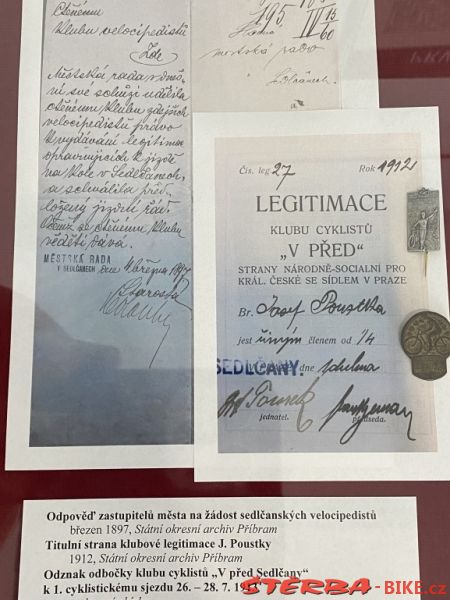 Ctěnému
klubu velocipedistů
Zde
Městská rada
své schůzi udělila
ctěnému klubu zdejších
velocipedistů právo
k vydávání legitimac
opravňujících k jízdě
na kole v Sedlčanech,
a schválila před
ložený jízdní řád.
ctěnému klubu
věděti dává.
MĚSTSKÁ RADA
V SEDLČANECH dne března 1897
Starosta
195 IV 15
60
městská rada
Čís. leg 27 Rok 1912
LEGITIMACE
KLUBU CYKLISTŮ
„V PŘED"
STRANY NÁRODNĚ-SOCIALNÍ PRO
KRÁL. ČESKÉ SE SÍDLEM V PRAZE
Br. Josef Poustka
jest činným členem od 1/4
SEDLČANY. dne
jednatel. předseda.
Odpověď zastupitelů města na žádost sedlčanských velocipedistů
březen 1897, Státní okresní archiv Příbram
Titulní strana klubové legitimace J. Poustky
1912, Státní okresní archiv Příbram
Odznak odbočky klubu cyklistů „V před Sedlčany"
k 1. cyklistickému sjezdu 26. – 28. 7.
ŠTĚRBA-BIKE.cz